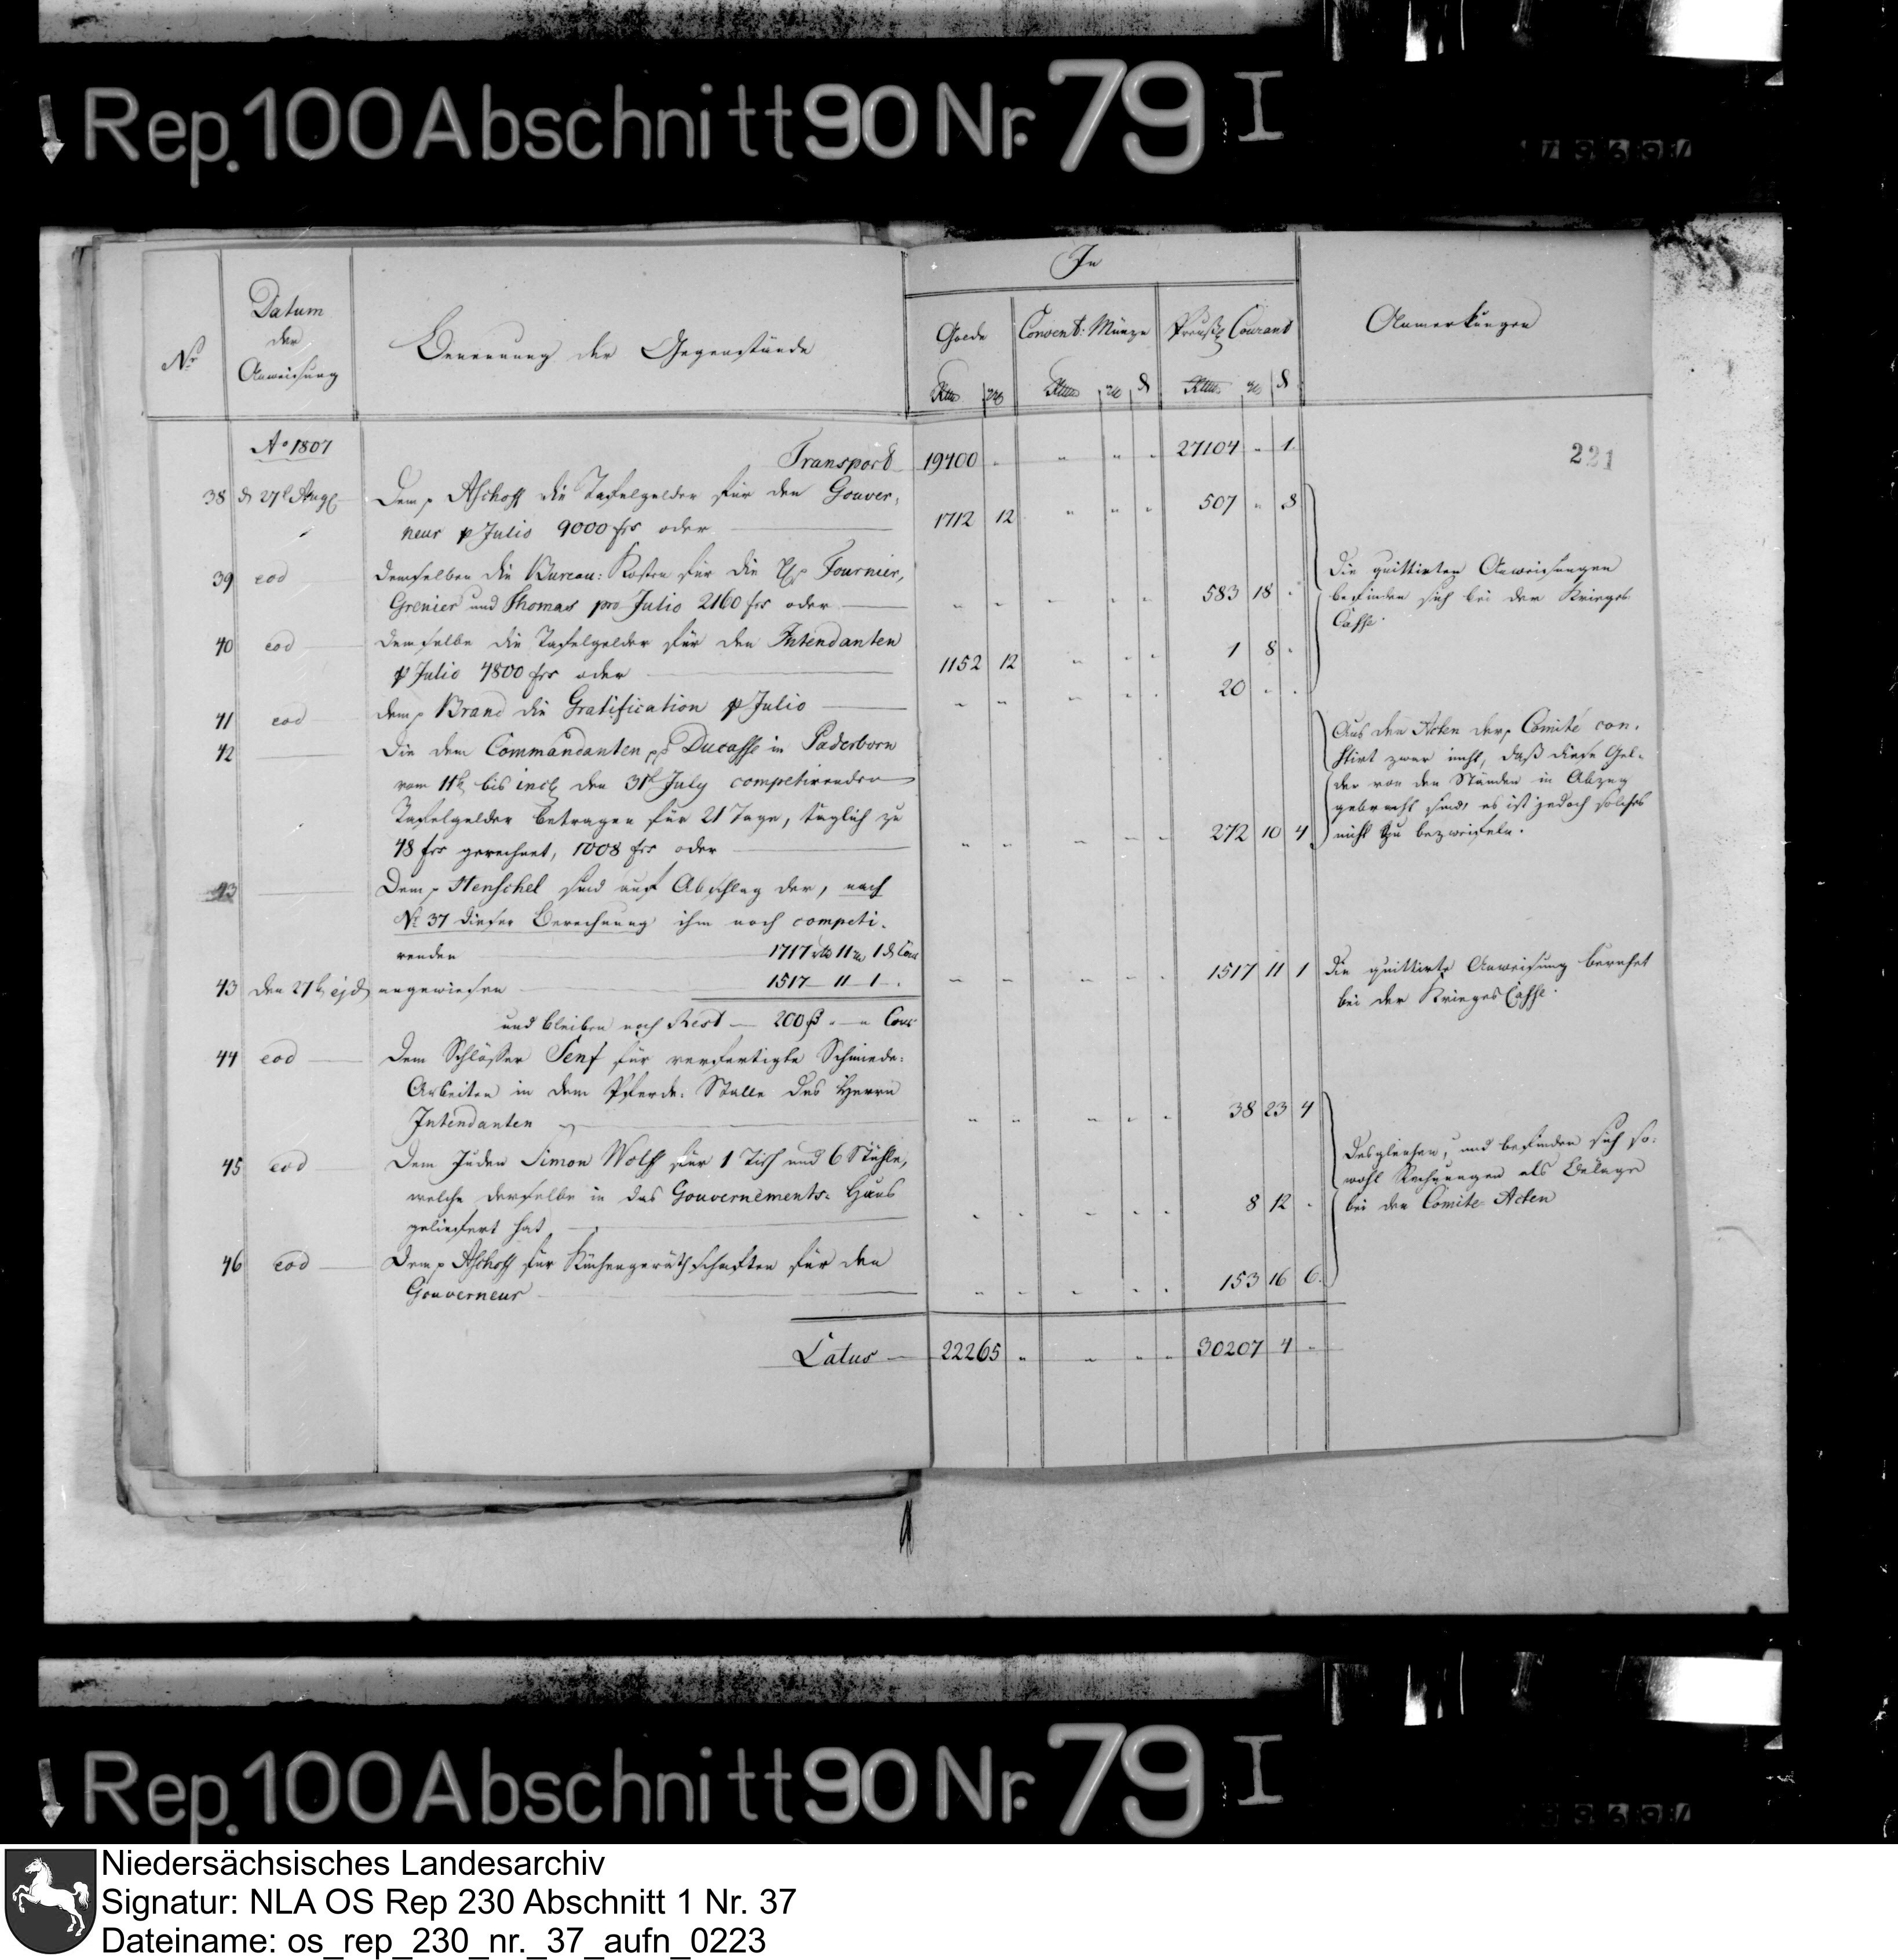 Rep. 100 Abschnitt 90 Nr. 79 I
In
Nr.
Datum
der
Anweisung
Benennung der Gegenstände
Golde
Convent: Münze
Preuß. Courant
Anmerkungen
A° 1807
221
Transport 19400 " " " " 27104 " 1
38 d 27t Aug. Dem p Aschoff die Tafelgelder für den Gouver-
neur p Julio 9000 frs oder 1712 12 " " " 507 " 8
39 eod demselben die Bureau: Kosten für die Fournier,
Grenier und Thomas pro Julio 2160 frs oder " " " " " 583 18 "
40 eod demselbe die Tafelgelder für den Intendanten
p Julio 4800 frs oder 1152 12 " " " 1 8 "
41 eod dem p Brand die Gratification p Julio " " " " " 20 " "
Die quittirten Anweisungen
befinden sich bei der Krieges
Casse.
42 Die dem Commandanten Ducasse in Paderborn
vom 11t bis incl den 31t July competirenden
Tafelgelder betragen für 21 Tage, täglich zu
48 frs gerechnet, 1008 frs oder " " " " " 272 10 4
Aus den Acten der p Comité con-
stirt zwar nicht, daß diese Gel-
der von den Ständen in Abzug
gebracht sind, es ist jedoch solches
nicht zu bezweifeln.
43 Dem p Henschel sind auf Abschlag der, nach
No 37 dieser Berechnung ihm noch competi-
renden 1717 rtl 11 1 d Cour
43 den 27t ejd angewiesen 1517 11 1 " " " " " 1517 11 1
und bleiben noch Rest 200 " " Cour
Die quittirte Anweisung beruhet
bei der Krieges Casse.
44 eod Dem Schlösser Senf für verfertigte Schmiede-
Arbeiten in dem Pferde-Stalle des Herrn
Intendanten " " " " " 38 23 4
45 eod Dem Juden Simon Wolff für 1 Tisch und 6 Stühle,
welche derselbe in das Gouvernements-Haus
geliefert hat " " " " " 8 12 "
46 eod Dem p Aschoff für Küchengeräthschaften für den
Gouverneur " " " " " 153 16 6
Desgleichen, und befinden sich so-
wohl Rechnungen als Beläge
bei den Comite-Acten
Latus 22265 " " " " 30207 4 "
Rep. 100 Abschnitt 90 Nr. 79 I
Niedersächsisches Landesarchiv
Signatur: NLA OS Rep 230 Abschnitt 1 Nr. 37
Dateiname: os_rep_230_nr._37_aufn_0223